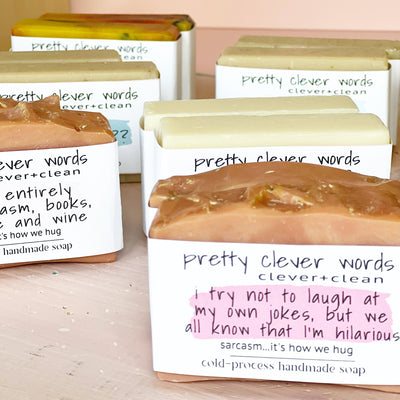 pretty clever words
clever+clean
pretty clever words
clever+clean
pretty clever words
clever+clean
??
pretty clever words
clever words
clever+clean
entirely
books,
and wine
it's how we hug
handmade soap
pretty clever words
clever+clean
i try not to laugh at
my own jokes, but we
all know that I'm hilarious
sarcasm...it's how we hug
cold-process handmade soap